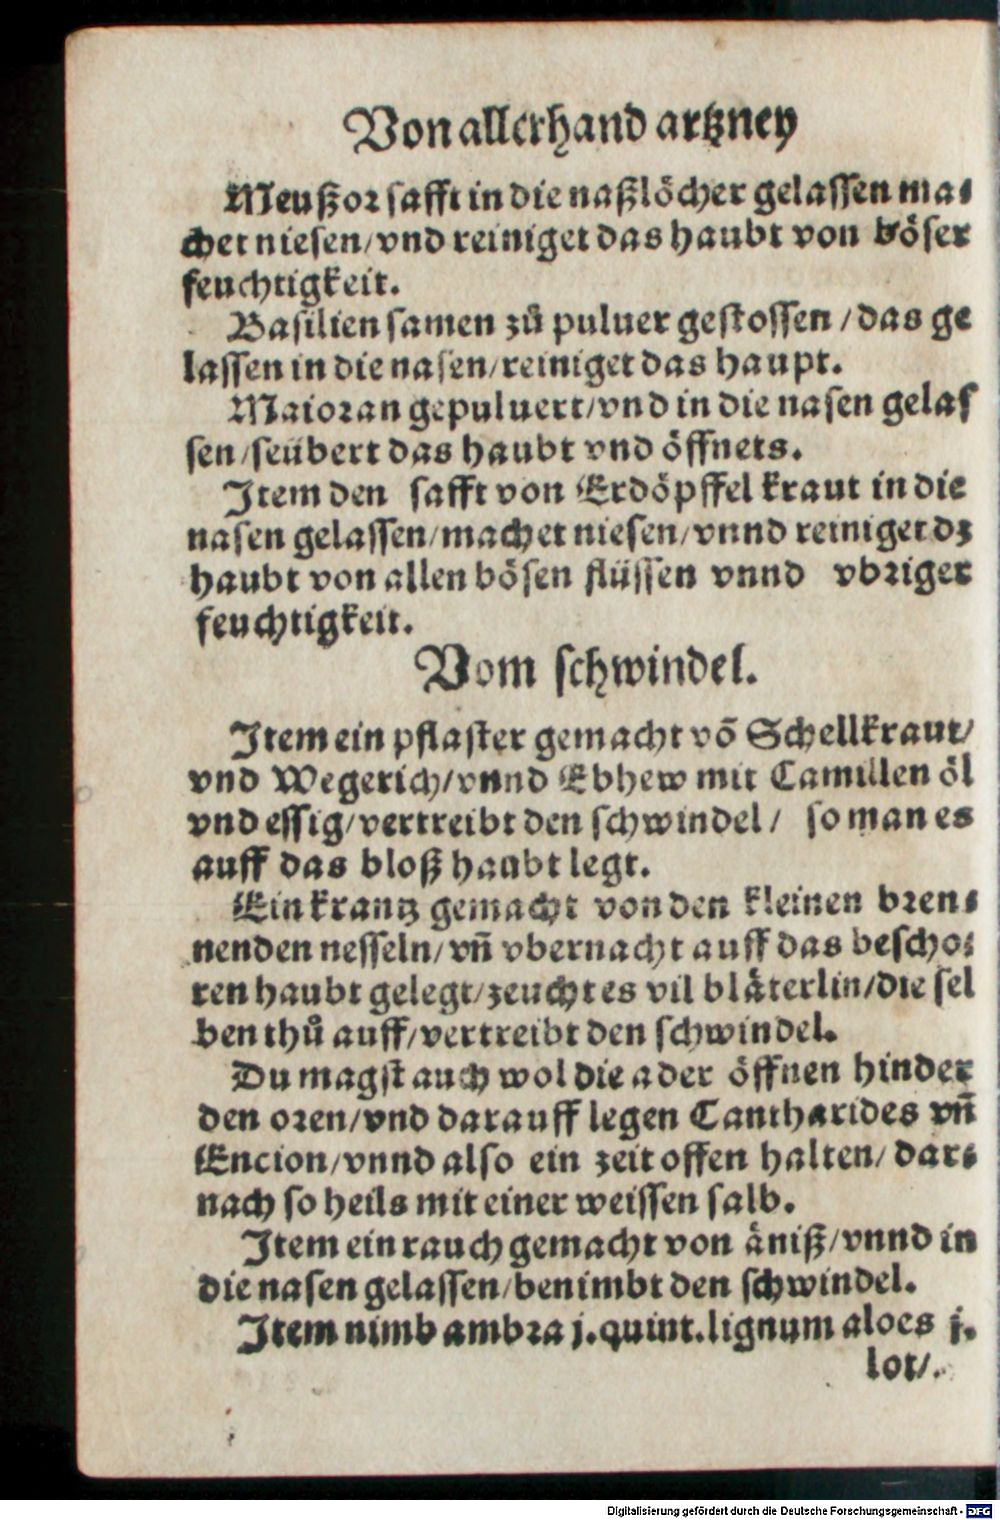 Von allerhand artzney
Meußor safft in die naßlöcher gelassen ma⸗
chet niesen/vnd reiniget das haubt von böser
feuchtigkeit.
Basilien samen zů puluer gestossen /das ge
lassen in die nasen/reiniget das haupt.
Maioran gepuluert/vnd in die nasen gelas
sen/seübert das haubt vnd öffnets.
Item den safft von Erdöpffel kraut in die
nasen gelassen/machet niesen/vnnd reiniget dz
haubt von allen bösen flüssen vnnd vbriger
feuchtigkeit.
Vom schwindel.
Item ein pflaster gemacht võ Schellkraut/
vnd Wegerich/vnnd Ebhew mit Camillen öl
vnd essig/vertreibt den schwindel/ so man es
auff das bloß haubt legt.
Ein krantz gemacht von den kleinen bren⸗
nenden nesseln/vñ vbernacht auff das bescho⸗
ren haubt gelegt/zeucht es vil bläterlin/die sel
ben thů auff/vertreibt den schwindel.
Du magst auch wol die ader öffnen hinder
den oren/vnd darauff legen Cantharides vñ
Encion/vnnd also ein zeit offen halten/ dar⸗
nach so heils mit einer weissen salb.
Item ein rauch gemacht von äniß/vnnd in
die nasen gelassen/benimbt den schwindel.
Item nimb ambra j.quint.lignum aloes j.
lot/.
Digitalisierung gefördert durch die Deutsche Forschungsgemeinschaft - DFG